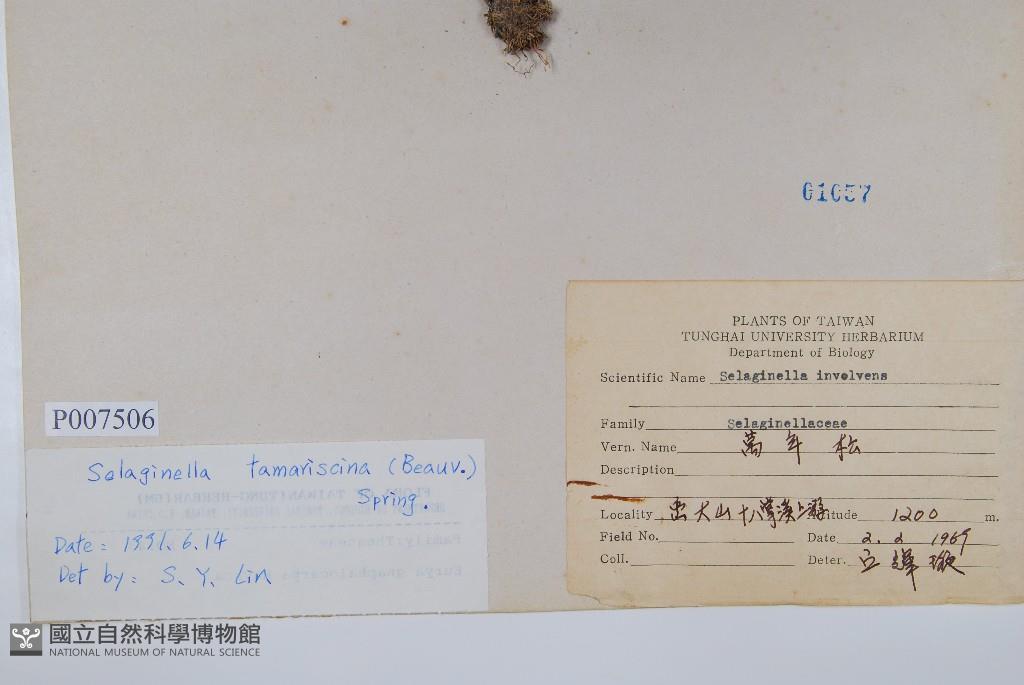 01057
PLANTS OF TAIWAN
TUNGHAI UNIVERSITY HERBARIUM
Department of Biology
Scientific Name Selaginella involvens
Family Selaginellaceae
Vern. Name 萬年松
Description
Locality 出大山十八彎溪上游 Altitude 1200 m.
Field No. Date 2. 2 1969
Coll. Deter.
P007506
Selaginella tamariscina (Beauv.)
Spring.
Date: 1991.6.14
Det by: S. Y. Lin
國立自然科學博物館
NATIONAL MUSEUM OF NATURAL SCIENCE